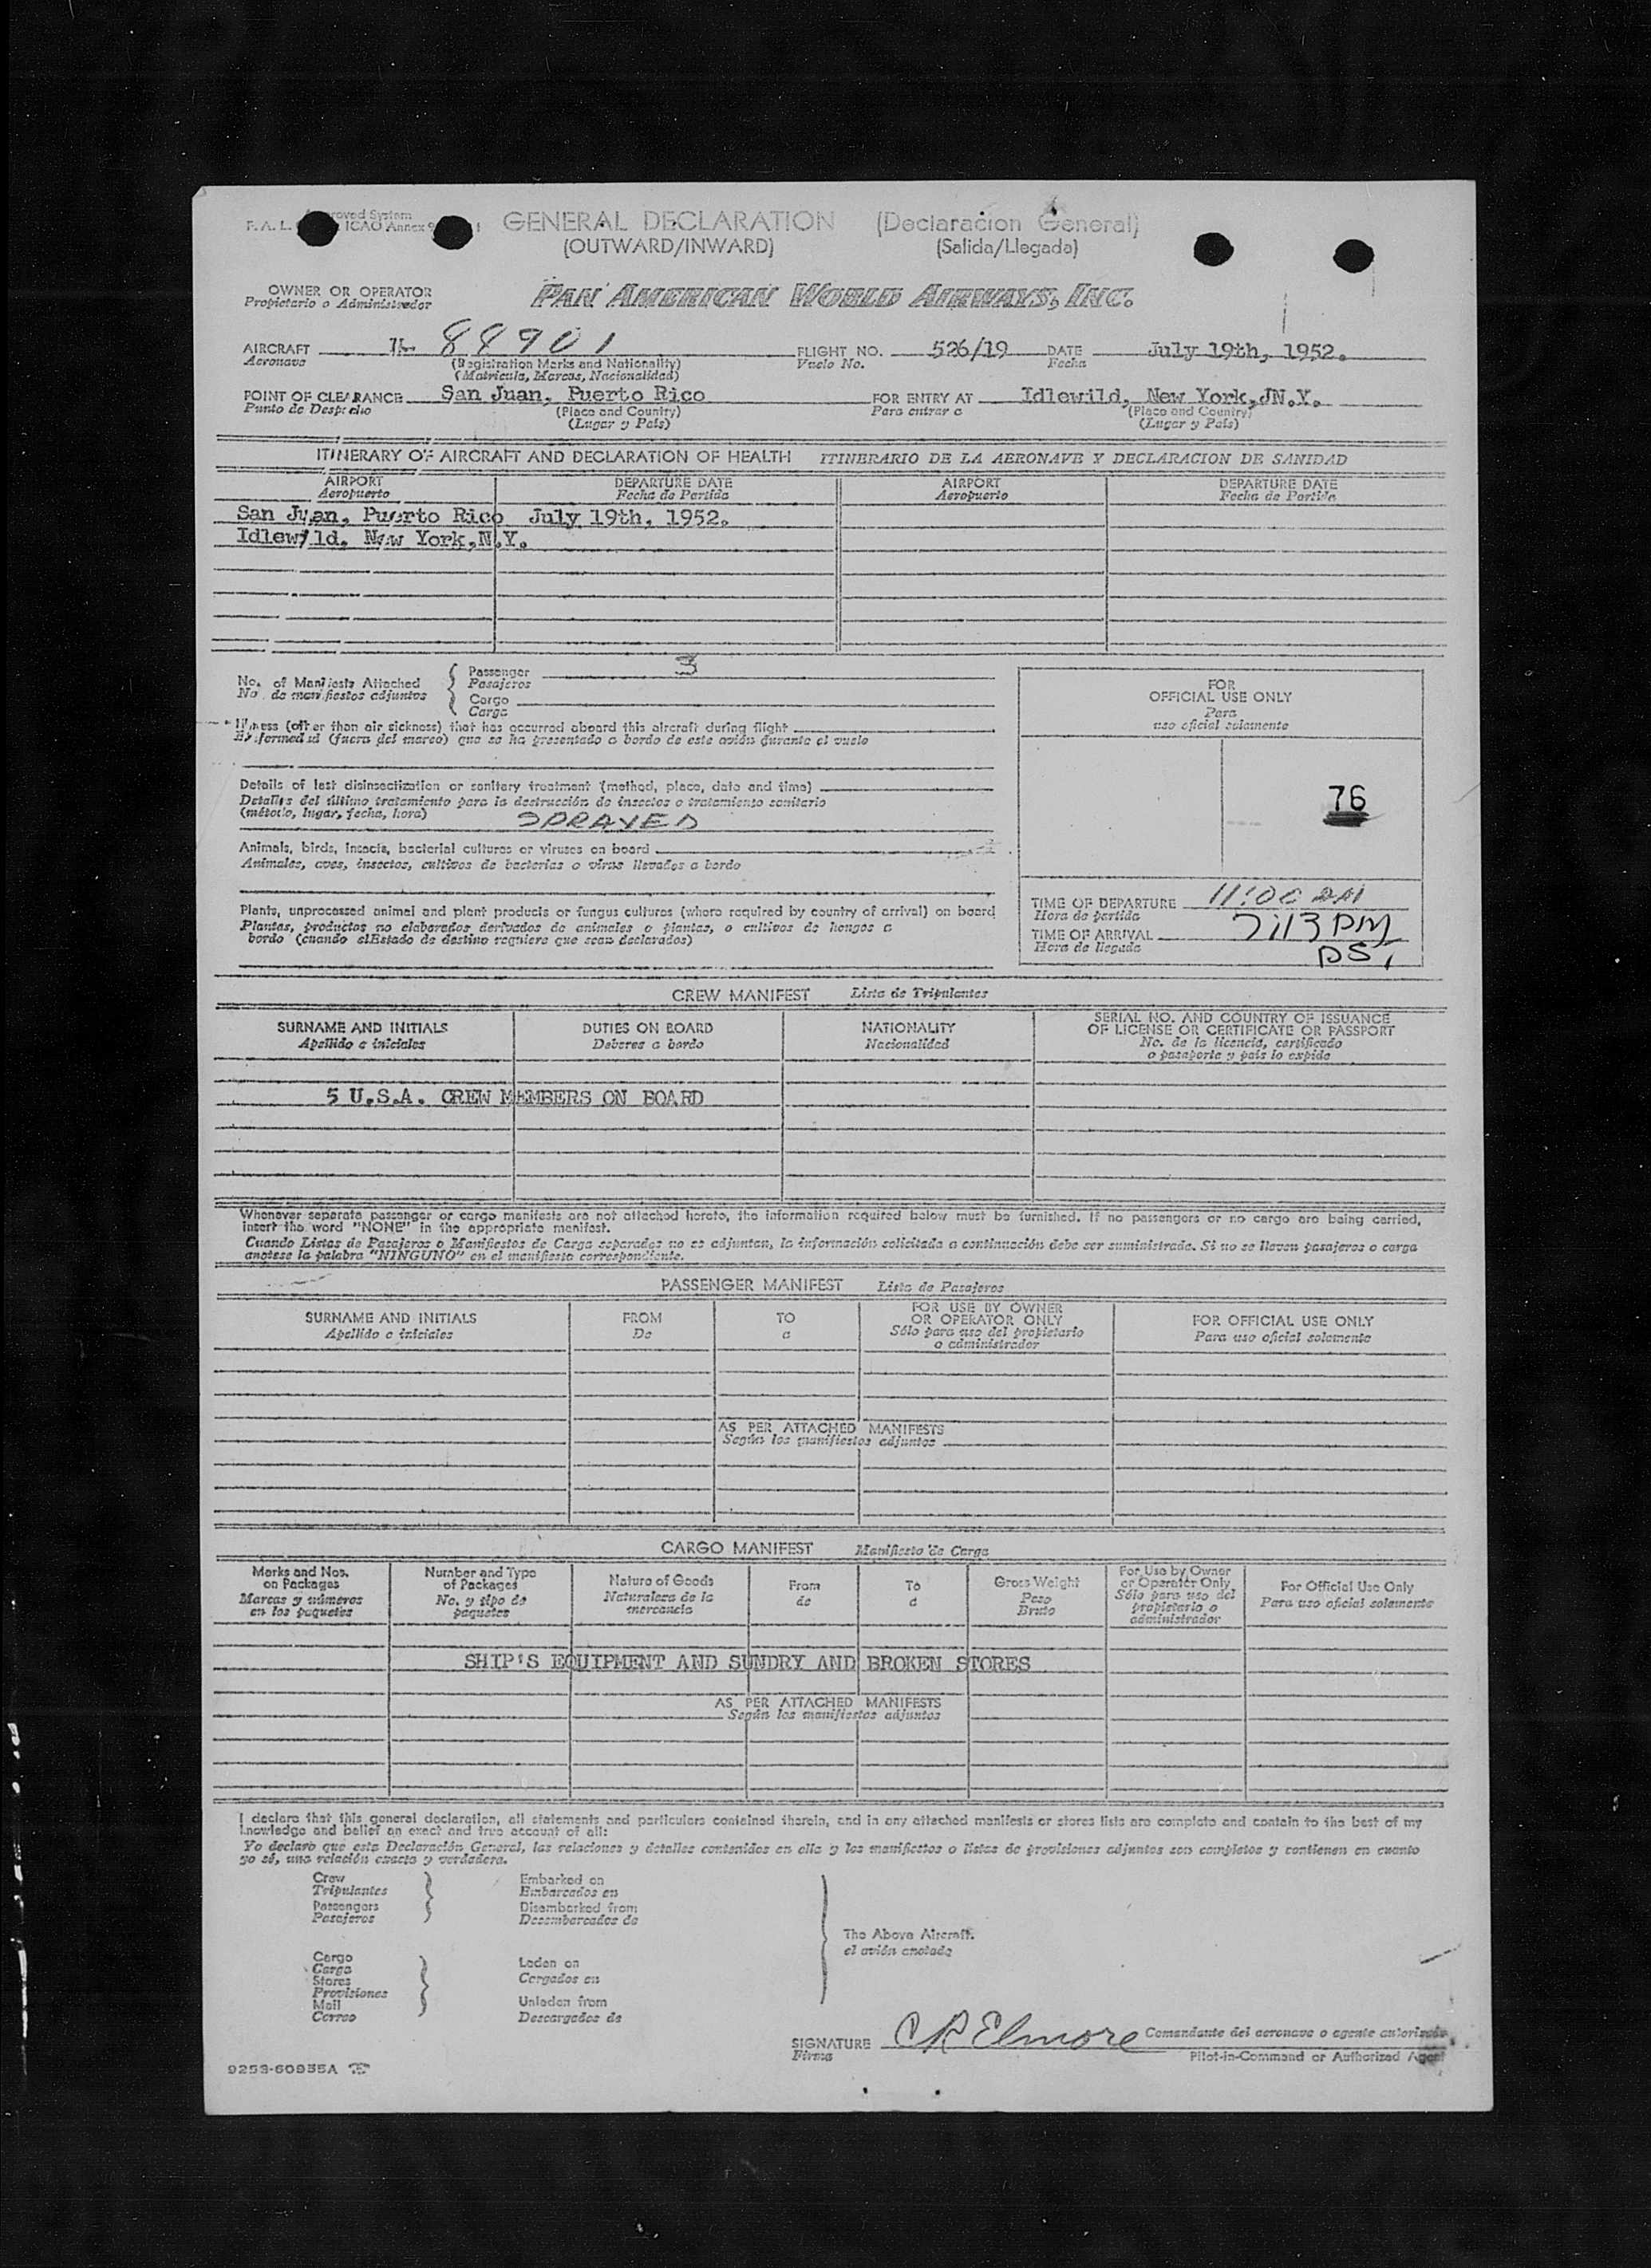 GENERAL DECLARATION (Declaracion General)
(OUTWARD/INWARD) (Salida/Llegada)
OWNER OR OPERATOR
Propietario o Administrador
PAN AMERICAN WORLD AIRWAYS, INC.
AIRCRAFT 88901 FLIGHT NO. 526/19 DATE July 19th, 1952.
Aeronave (Registration Marks and Nationality) Vuelo No. Fecha
(Matricula, Marcas, Nacionalidad)
POINT OF CLEARANCE San Juan, Puerto Rico FOR ENTRY AT Idlewild, New York, N.Y.
Punto de Despacho (Place and Country) Para entrar a (Place and Country)
(Lugar y País) (Lugar y País)
ITINERARY OF AIRCRAFT AND DECLARATION OF HEALTH ITINERARIO DE LA AERONAVE Y DECLARACION DE SANIDAD
AIRPORT DEPARTURE DATE AIRPORT DEPARTURE DATE
Aeropuerto Fecha de Partida Aeropuerto Fecha de Partida
San Juan, Puerto Rico July 19th, 1952.
Idlewild, New York, N.Y.
No. of Manifests Attached
No. de manifiestos adjuntos
Passenger 3
Pasajeros
Cargo
Carga
Illness (other than air sickness) that has occurred aboard this aircraft during flight
Enfermedad (fuera del mareo) que se ha presentado a bordo de este avión durante el vuelo
Details of last disinsectization or sanitary treatment (method, place, date and time)
Detalles del último tratamiento para la destrucción de insectos o tratamiento sanitario
(método, lugar, fecha, hora) SPRAYED
Animals, birds, insects, bacterial cultures or viruses on board
Animales, aves, insectos, cultivos de bacterias o virus llevados a bordo
Plants, unprocessed animal and plant products or fungus cultures (where required by country of arrival) on board
Plantas, productos no elaborados derivados de animales o plantas, o cultivos de hongos a
bordo (cuando el Estado de destino requiere que sean declarados)
FOR
OFFICIAL USE ONLY
Para
uso oficial solamente
76
TIME OF DEPARTURE 11:00
Hora de partida
TIME OF ARRIVAL 7:13 PM
Hora de llegada
CREW MANIFEST Lista de Tripulantes
SURNAME AND INITIALS DUTIES ON BOARD NATIONALITY SERIAL NO. AND COUNTRY OF ISSUANCE
OF LICENSE OR CERTIFICATE OR PASSPORT
Apellido e iniciales Deberes a bordo Nacionalidad No. de la licencia, certificado
o pasaporte y país lo expide
5 U.S.A. CREW MEMBERS ON BOARD
Whenever separate passenger or cargo manifests are not attached hereto, the information required below must be furnished. If no passengers or no cargo are being carried,
insert the word "NONE" in the appropriate manifest.
Cuando Listas de Pasajeros o Manifiestos de Carga separados no se adjuntan, la información solicitada a continuación debe ser suministrada. Si no se llevan pasajeros o carga
anótese la palabra "NINGUNO" en el manifiesto correspondiente.
PASSENGER MANIFEST Lista de Pasajeros
SURNAME AND INITIALS FROM TO FOR USE BY OWNER
OR OPERATOR ONLY FOR OFFICIAL USE ONLY
Apellido e iniciales De a Sólo para uso del propietario
o administrador Para uso oficial solamente
AS PER ATTACHED MANIFESTS
Según los manifiestos adjuntos
CARGO MANIFEST Manifiesto de Carga
Marks and Nos.
on Packages
Marcas y números
en los paquetes
Number and Type
of Packages
No. y tipo de
paquetes
Nature of Goods
Naturaleza de la
mercancia
From
de
To
a
Gross Weight
Peso
Bruto
For Use by Owner
or Operator Only
Sólo para uso del
propietario o
administrador
For Official Use Only
Para uso oficial solamente
SHIP'S EQUIPMENT AND SUNDRY AND BROKEN STORES
AS PER ATTACHED MANIFESTS
Según los manifiestos adjuntos
I declare that this general declaration, all statements and particulars contained therein, and in any attached manifests or stores lists are complete and contain to the best of my
knowledge and belief an exact and true account of all:
Yo declaro que esta Declaración General, las relaciones y detalles contenidos en ella y los manifiestos o listas de provisiones adjuntos son completos y contienen en cuanto
yo sé, una relación exacta y verdadera.
Crew
Tripulantes
Passengers
Pasajeros
Embarked on
Embarcados en
Disembarked from
Desembarcados de
Cargo
Carga
Stores
Provisiones
Mail
Correo
Laden on
Cargados en
Unladen from
Descargados de
The Above Aircraft.
el avión anotado
SIGNATURE C R Elmore Comandante del aeronave o agente autorizado
Firma Pilot-in-Command or Authorized Agent
9253-60955A